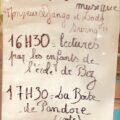 musique
Monsieur Django et Lady
16H30 = Lectures
par les enfants de
l'école de Boz
17H30 = La Boîte
de Pandore